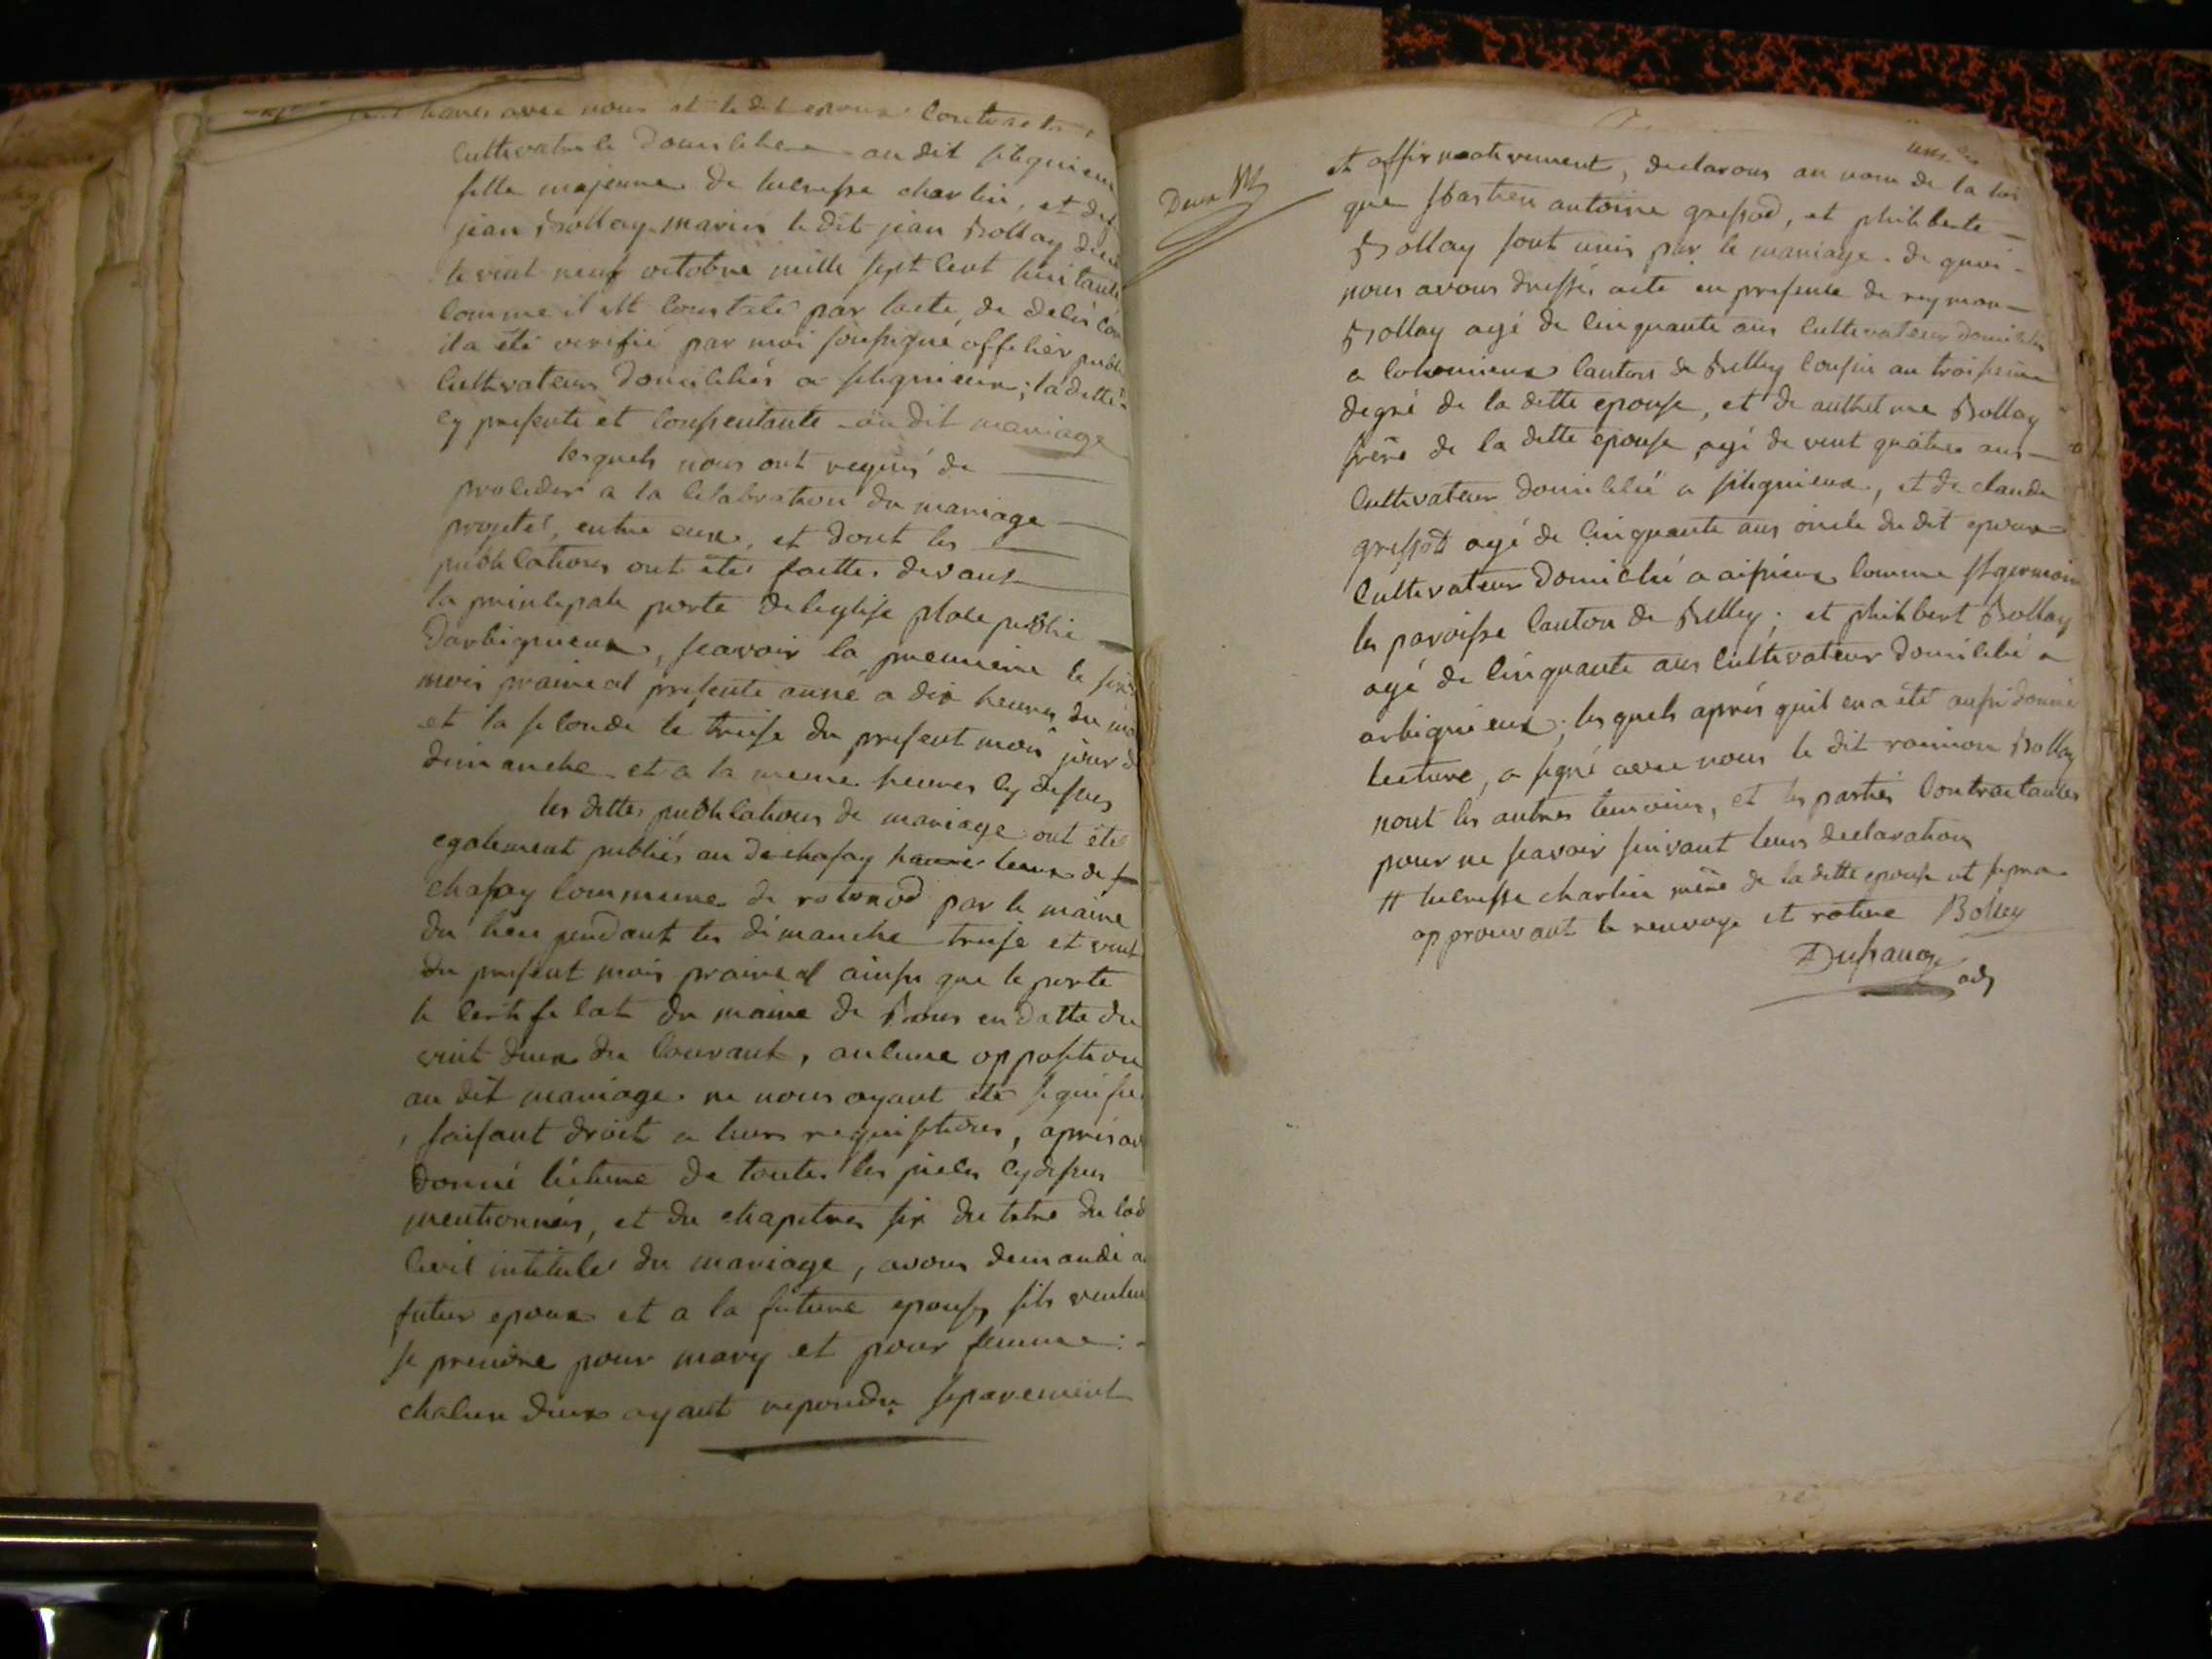 avec nous et le dit epoux
Cultivatrice domicilieé au dit sitignieux
fille majeure de lucresse charlin, et de
jean Bollay mariés le dit jean Bollay
le vint neuf octobre mille sept cent huitante
comme il est constaté par lacte de deces
il a eté verifié par moi soussigné officier public
cultivateurs domicilliés a sitignieux; la ditte
cy presente et consentante au dit mariage
lesquels nous ont requis de
proceder a la celabration du mariage
projeté, entre eux, et dont les
publications ont eté faittes devant
la principale porte de leglise place public
darbignieux, scavoir la premiere le
mois prairial presente anné a dix heures du
et la seconde le treise du present mois jour
dimanche et a la meme heures cy dessus
les dittes publications de mariage ont eté
egalement publiés au de chasay
chasay commune de rotonod par le maire
du lieu pendant les dimanche treise et vint
du present mois prairial ainsy que le porte
le certificat du maire de Bons en datte du
vint deux du courant, aucune opposition
au dit mariage ne nous ayant eté signifie
, faisant droit a leurs requisitions, apres
donné lécture de toutes les pieces cy dessus
mentionnés, et du chapitres six du titre du
civil intitulé du mariage, avons demandé
futur epoux et a la future epouse sils veulent
se prendre pour mary et pour femme:
chacun deux ayant repondu separement
Deux
et affirmativement, declarons au nom de la loi
que sbastien antoine gressod, et philiberte
Bollay sont unis par le mariage. de quoi
nous avons dressés acte en presence de reymon
Bollay agé de cinquante ans cultivateur domicilié
a colomieux canton de Belley cousin au troisieme
degré de la ditte epouse, et de anthelme Bollay
frère de la ditte epouse agé de vint quatre ans
cultivateur domicilié a sitignieux, et de claude
gressod agé de cinquante ans oncle du dit epoux
cultivateur domicilié a aisieux commune st germain
les paroisse canton de Belley; et philibert Bollay
agé de cinquante ans cultivateur domicilié a
arbignieux; lesquels aprés quil en a eté aussi donné
lecture, a signé avec nous le dit raimon Bollay
nont les autres temoins, et les partiés contractantes
pour ne scavoir suivant leurs declaration
# lucresse charlin mère de la ditte epouse
approuvant le renvoye et rature Bolley
Dufranay
adj